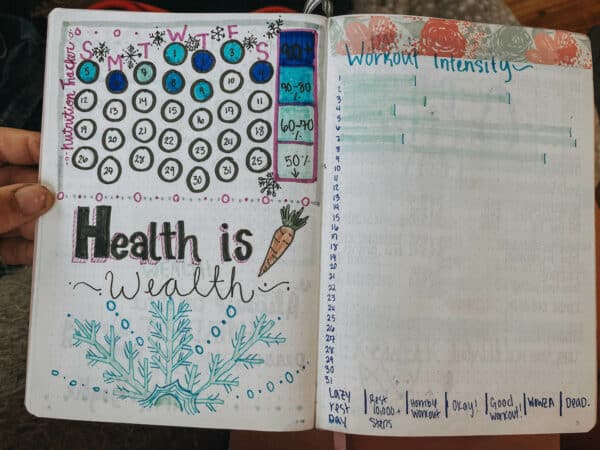 Nutrition Tracker
S M T W T F S
1 3
5 7 8 9 10 11
12 13 14 15 16 17 18
19 20 21 22 23 24 25
26 28 30 31
90-80
%
60-70
%
50%
↓
Health is
Wealth
Workout Intensity
1
2
3
4
5
6
7
8
9
10
11
12
13
14
15
16
17
18
19
20
21
22
23
24
25
26
27
28
29
30
31
Lazy rest Day
Rest 10,000+ Steps
Horrible Workout
Okay!
Good Workout!
WOWZA
DEAD.